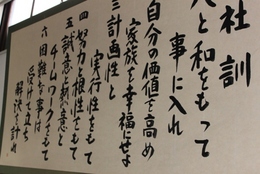 社訓
人と和をもって
事に入れ
自分の価値を高め
家族を幸福にせよ
三 計画性と
実行性をもて
四 努力と根性をもて
五 誠意と熱意と
チームワークをもて
六 困難な事は
受けて立ち
解決を計れ